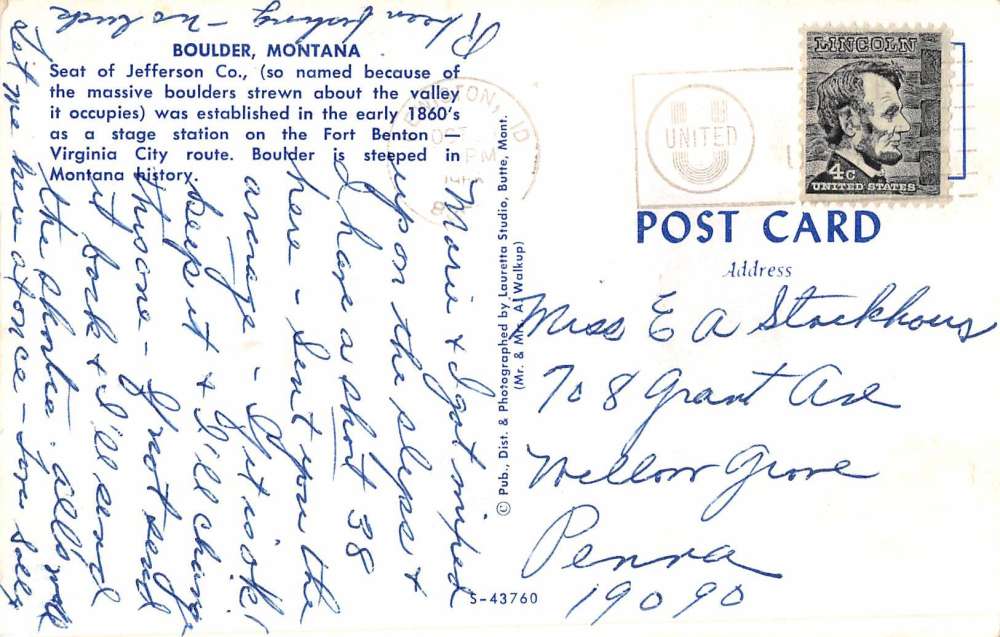 BOULDER, MONTANA
Seat of Jefferson Co., (so named because of
the massive boulders strewn about the valley
it occupies) was established in the early 1860's
as a stage station on the Fort Benton —
Virginia City route. Boulder is steeped in
Montana history.
Marie & I got mixed
up on the slips &
I have a short 38
here - Sent you the
average - If it is ok
keep it & I'll change
this one - If not send
it back & I'll send
the shortie. all's well
Let me hear at once - Love Sally
Been fishing - no luck
© Pub., Dist. & Photographed by Lauretta Studio, Butte, Mont.
(Mr. & Mrs. A. Walkup)
S-43760
ID
PM
UNITED
LINCOLN
4c
UNITED STATES
POST CARD
Address
Miss E A Stackhous
708 Grant Ave
Willow Grove
Penna
19090